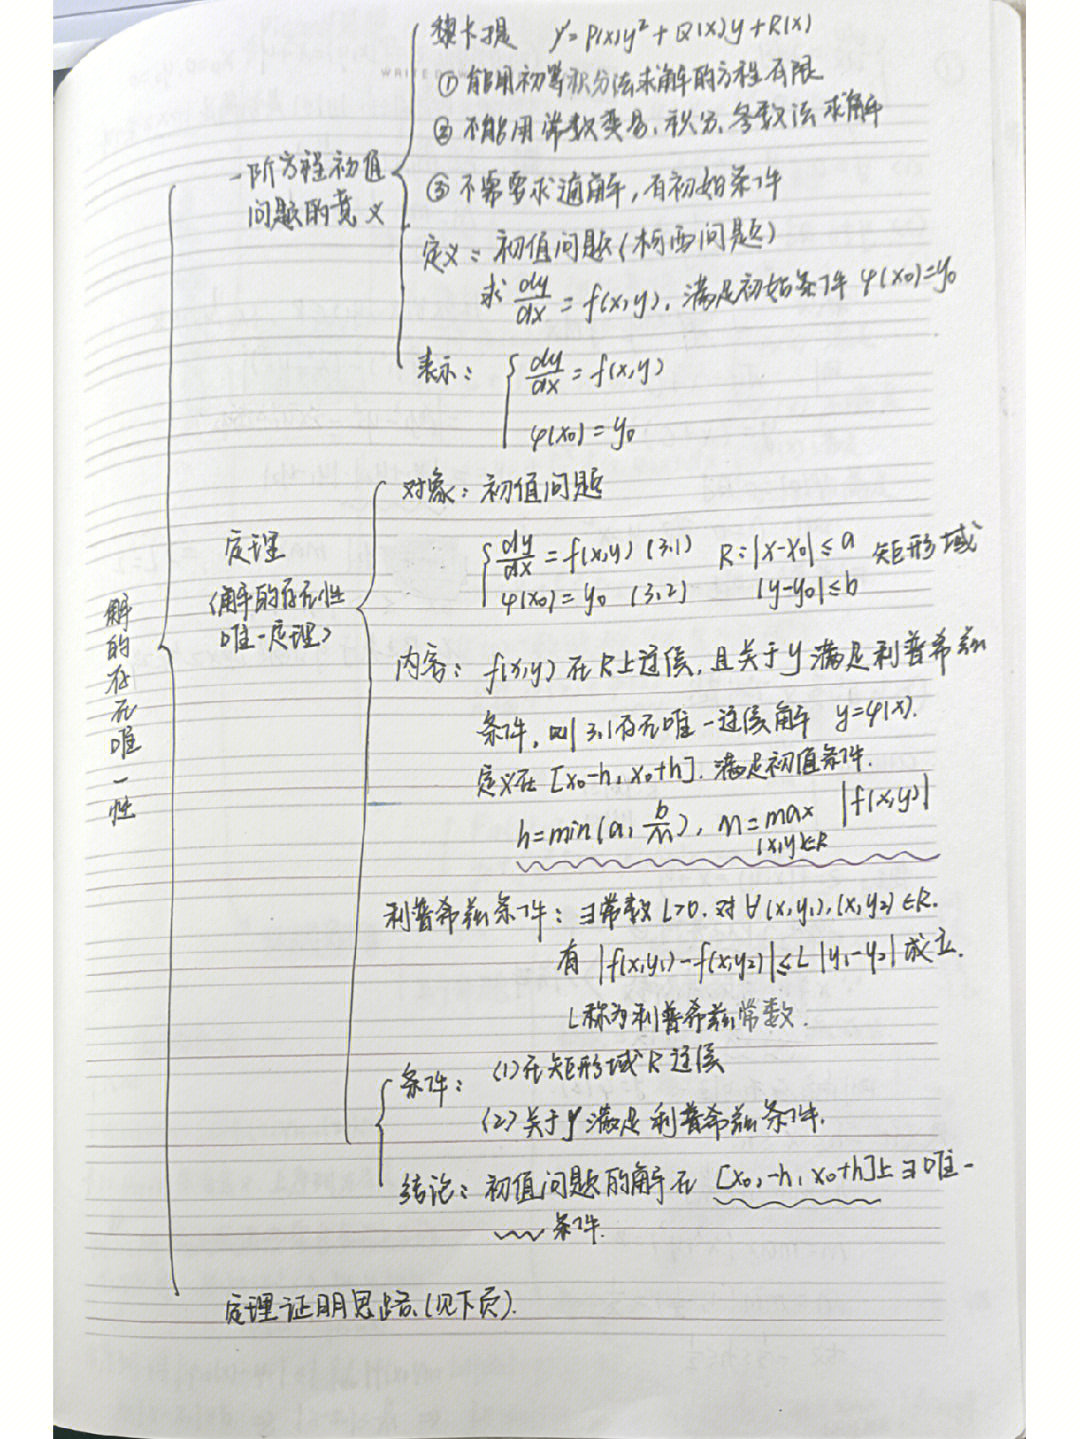 黎卡提 y'=P(x)y²+Q(x)y+R(x)
①能用初等积分法求解的方程有限
②不能用常数变易、积分、参数法求解
一阶方程初值
问题的意义
③不需要求通解,有初始条件
定义:初值问题(柯西问题)
求 dy/dx = f(x,y), 满足初始条件 φ(x₀)=y₀
表示: { dy/dx = f(x,y)
φ(x₀)=y₀
解的存在唯一性
定理
(解的存在性
唯一定理)
对象:初值问题
{ dy/dx = f(x,y) (3.1) R:|x-x₀|≤a 矩形域
φ(x₀)=y₀ (3.2) |y-y₀|≤b
内容: f(x,y)在R上连续,且关于y满足利普希兹
条件,则3.1存在唯一连续解 y=φ(x).
定义在[x₀-h, x₀+h].满足初值条件.
h=min(a, b/M), M=max |f(x,y)|
(x,y)∈R
利普希兹条件:∃常数L>0.对∀(x,y₁),(x,y₂)∈R.
有 |f(x,y₁)-f(x,y₂)|≤L|y₁-y₂|成立.
L称为利普希兹常数.
条件: (1)在矩形域R连续
(2)关于y满足利普希兹条件.
结论:初值问题的解在[x₀,-h, x₀+h]上∃唯一
条件.
定理证明思路.(见下页).